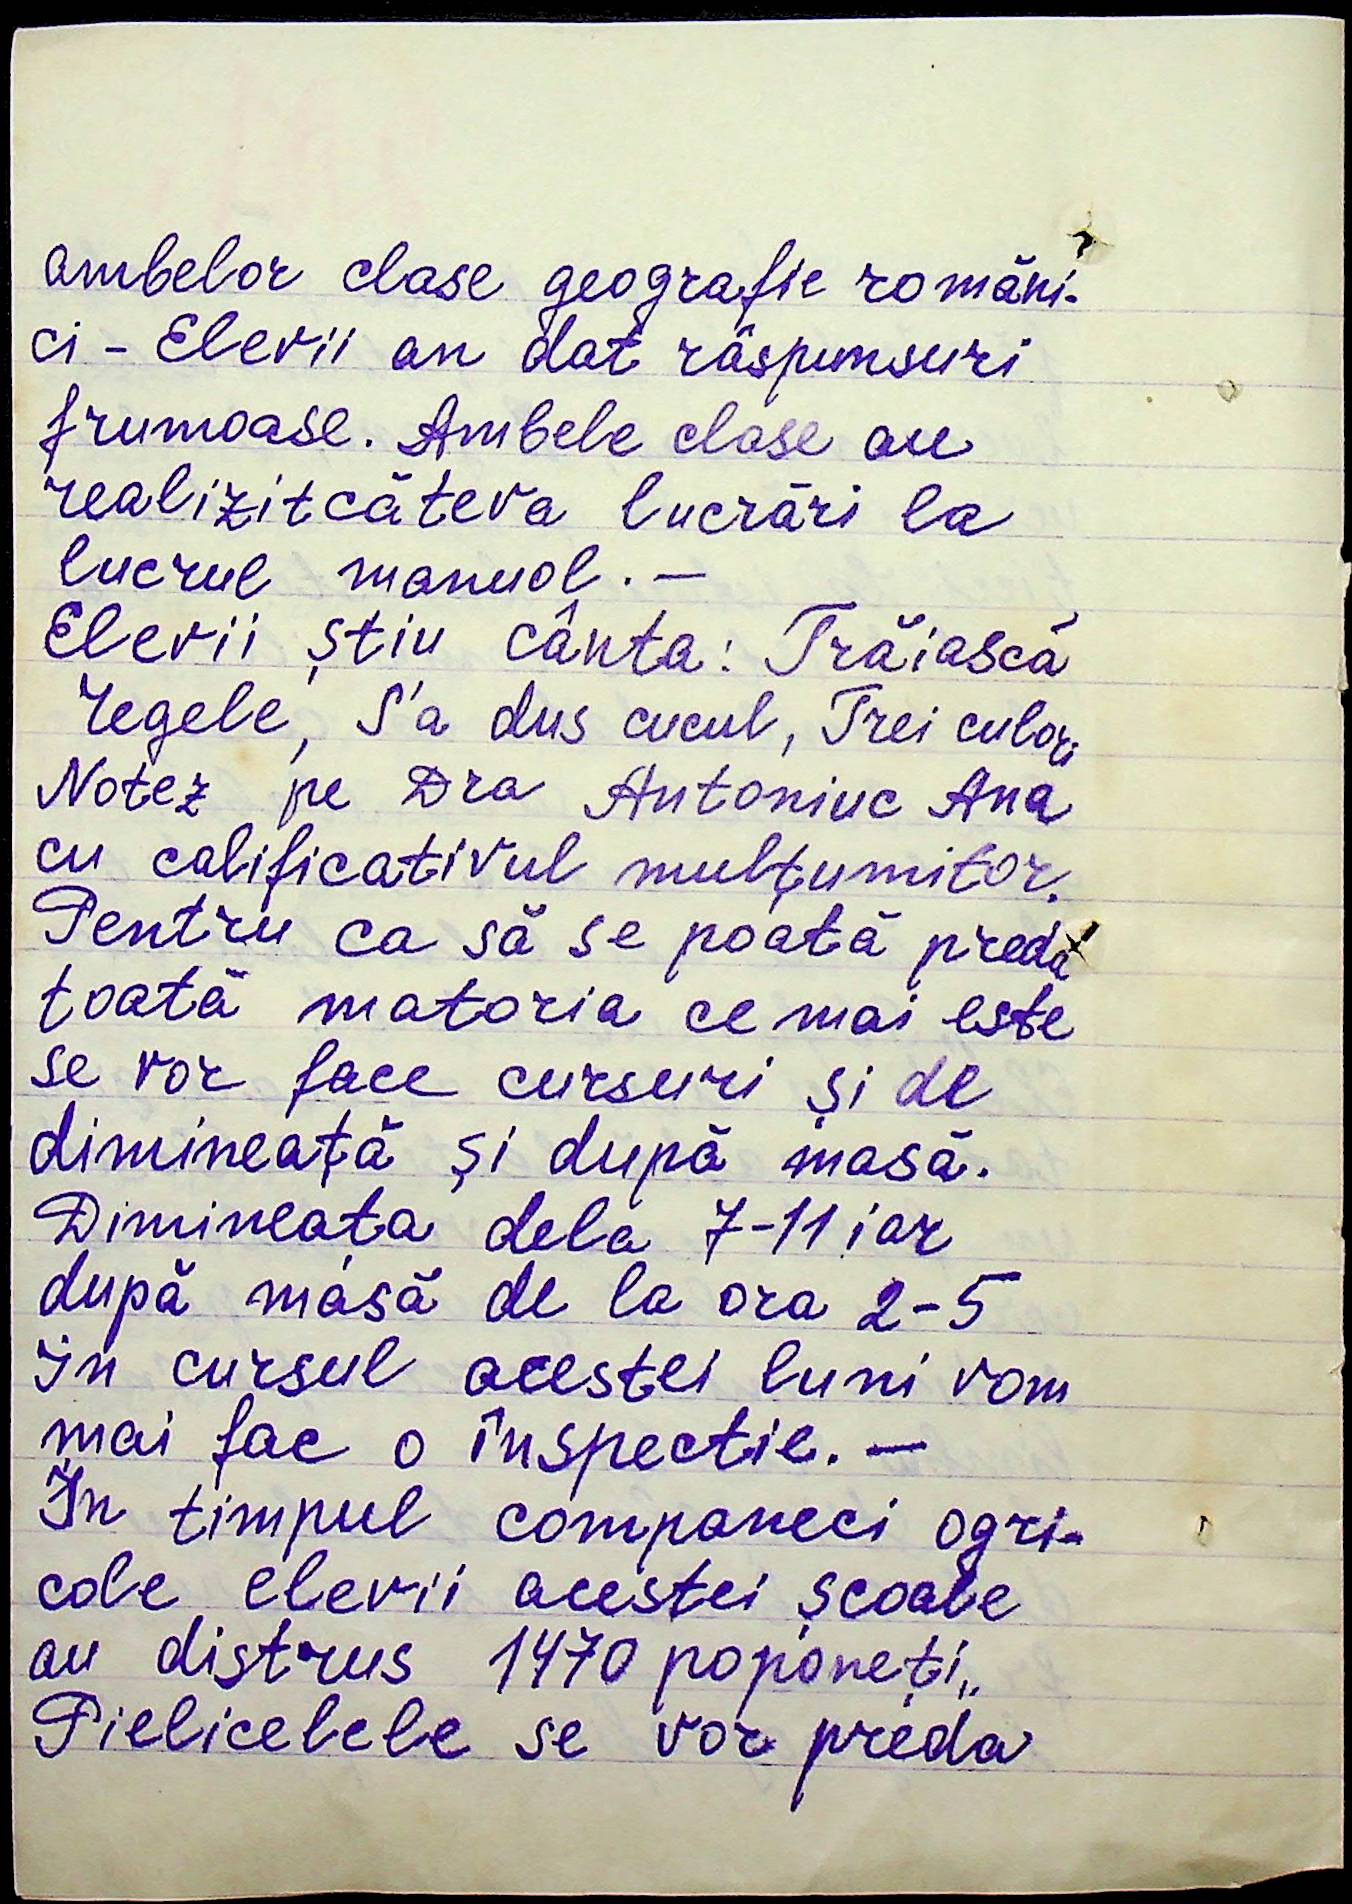 ambelor clase geografie români-
ci - Elevii au dat răspunsuri
frumoase. Ambele clase au
realizit câteva lucrări la
lucrul manual. —
Elevii știu cânta: Trăiască
regele, S'a dus cucul, Trei culori
Notez pe Dra Antoniuc Ana
cu calificativul mulțumitor.
Pentru ca să se poată preda
toată matoria ce mai este
se vor face cursuri și de
dimineață și după masă.
Dimineata dela 7-11 iar
după masă de la ora 2-5
În cursul acestei luni vom
mai fac o înspectie. —
În timpul companeci agri-
cole elevii acestei școale
au distrus 1470 poponeți,,
Pielicelele se vor preda